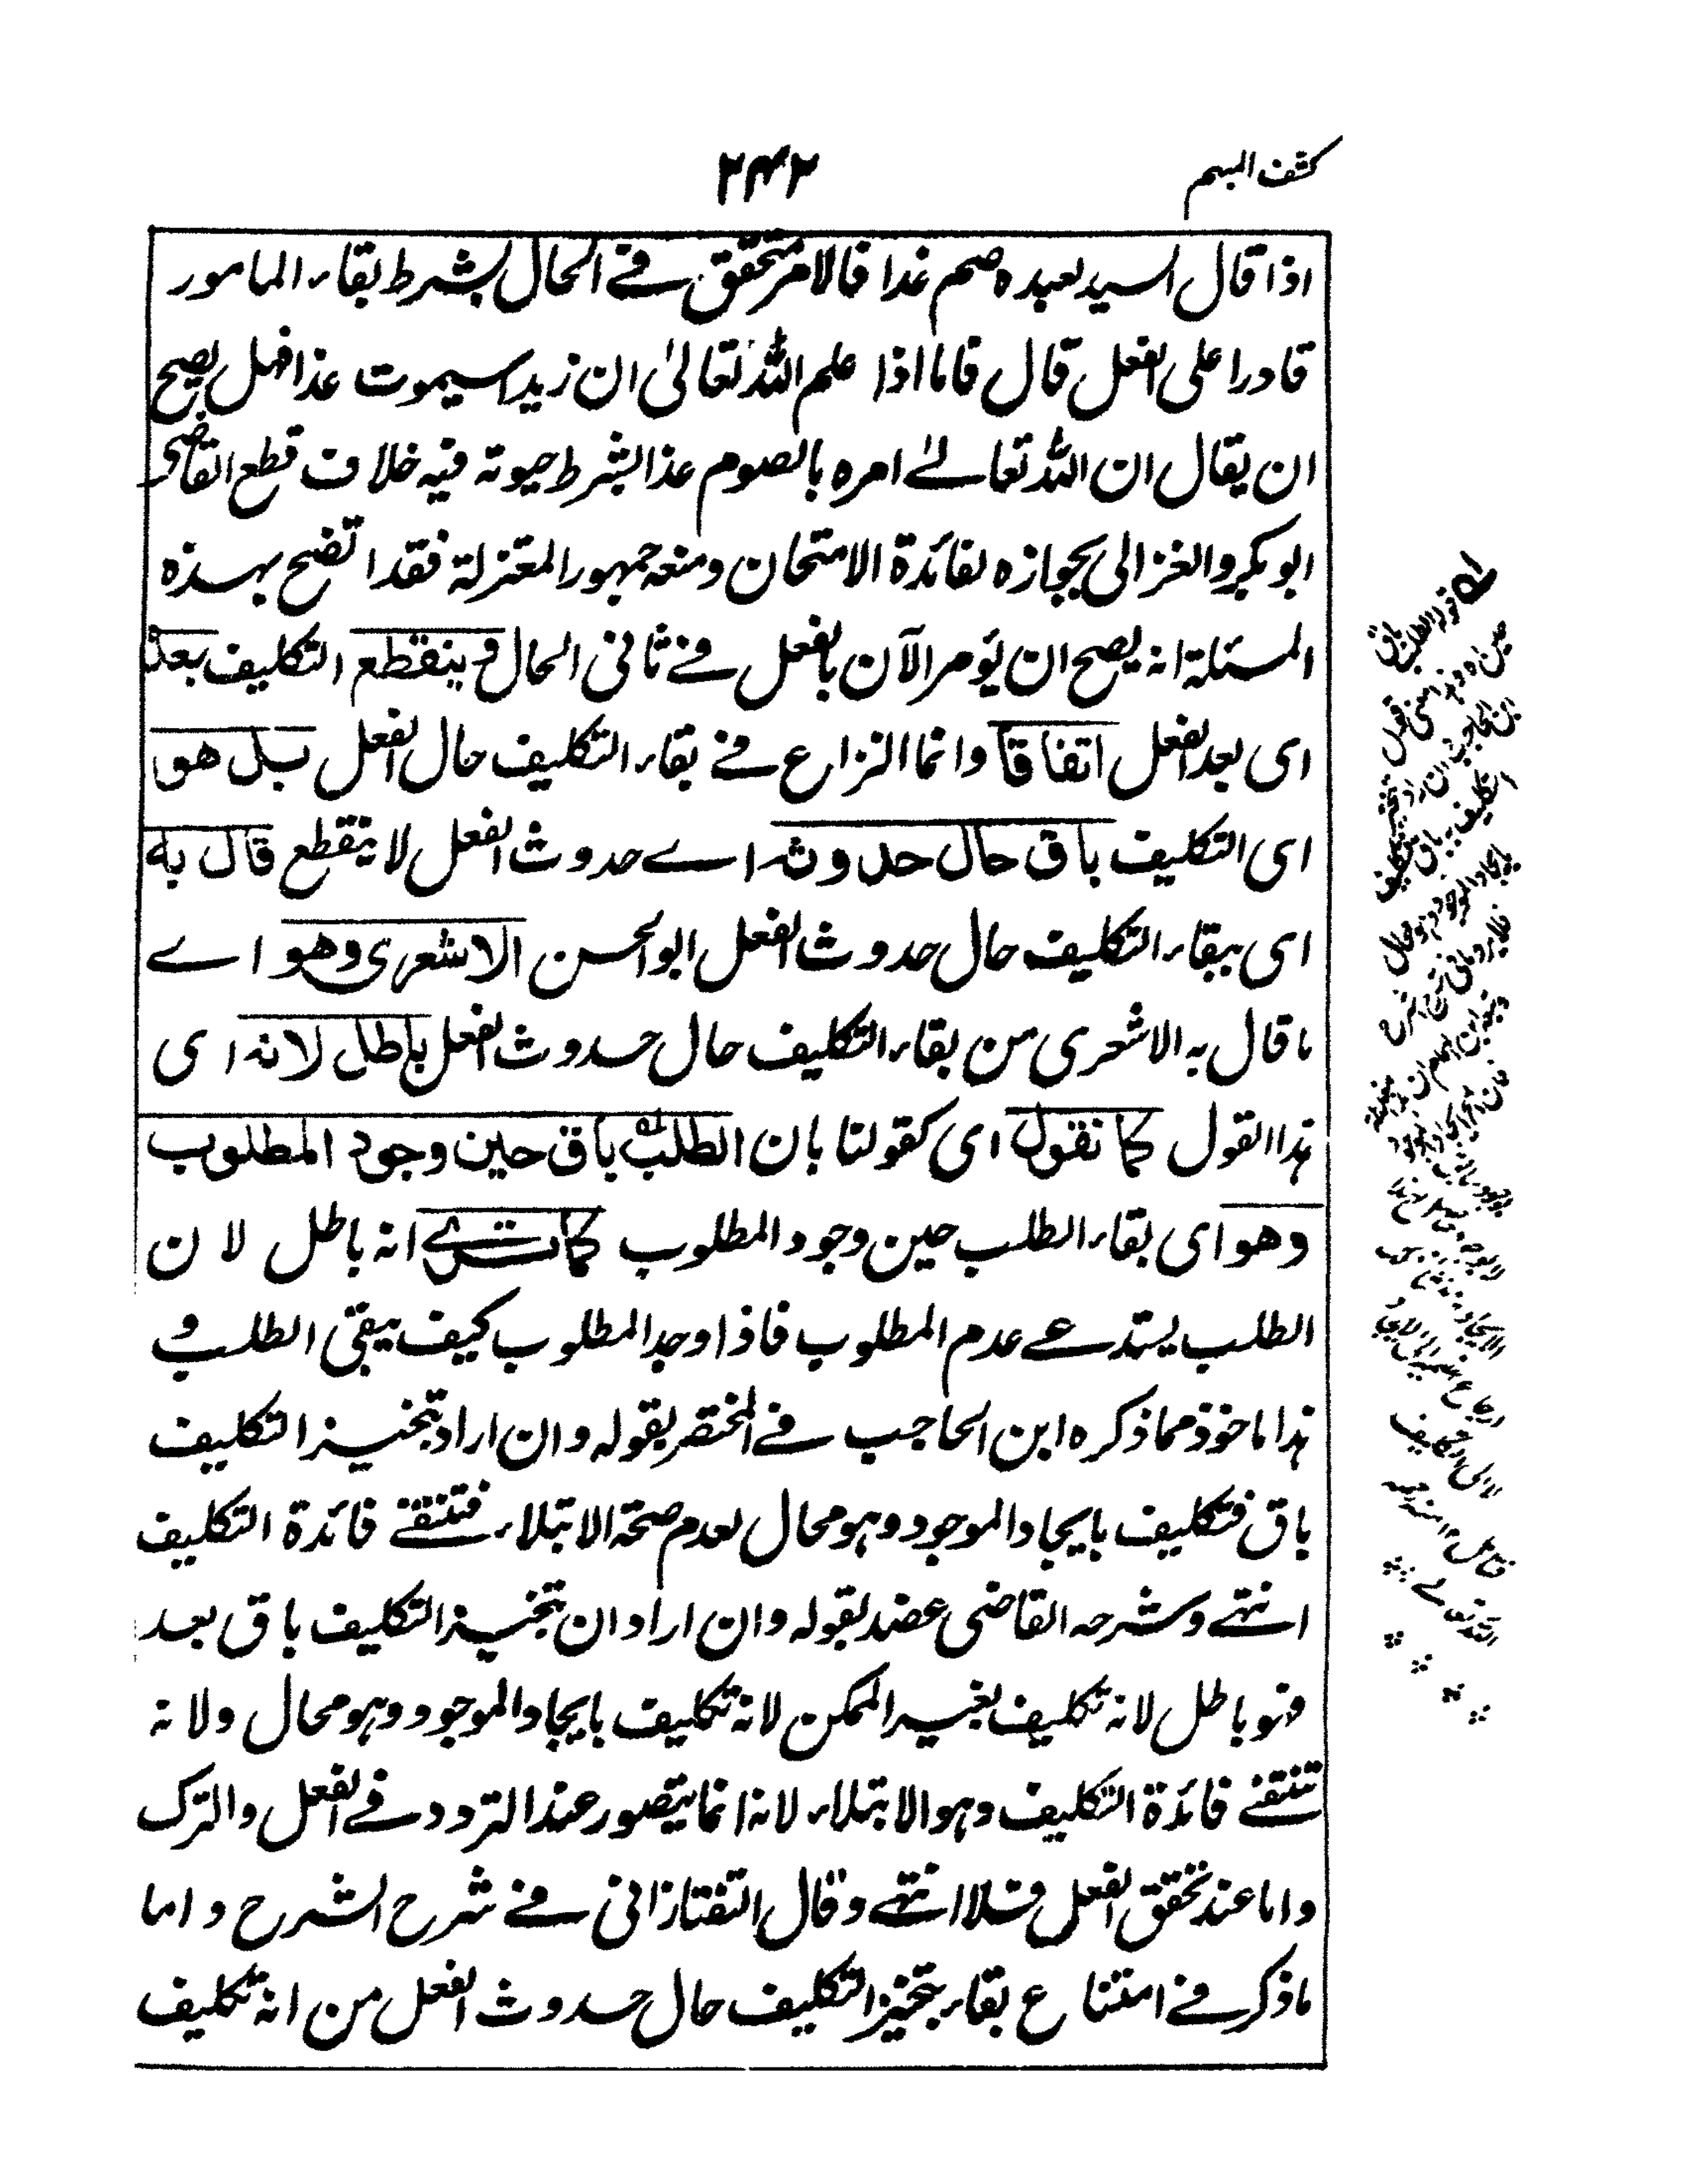 كشف المبهم
٢٤٢
اذا قال السيد لعبده صم غدا فالامر متحقق في الحال بشرط بقاء المامور
قادرا على الفعل قال فاما اذا علم الله تعالىٰ ان زيدا سيموت غدا فهل يصح
ان يقال ان الله تعالىٰ امره بالصوم غدا بشرط حيوته فيه خلاف قطع القاضي
ابو بكر والغزالى بجوازه لفائدة الامتحان ومنعه جمهور المعتزلة فقد اتضح بهذه
المسئلة انه يصح ان يؤمر الآن بالفعل في ثانى الحال وينقطع التكليف بعده
اى بعد الفعل اتفاقا وانما النزاع في بقاء التكليف حال الفعل بل هو
اى التكليف باق حال حدوثه اے حدوث الفعل لا ينقطع قال به
اى ببقاء التكليف حال حدوث الفعل ابو الحسن الاشعرى وهو اے
ما قال به الاشعرى من بقاء التكليف حال حدوث الفعل باطل لانه اى
هذا القول كما نقول اى كقولنا بان الطلب باق حين وجود المطلوب
وهو اى بقاء الطلب حين وجود المطلوب كما ترے انه باطل لان
الطلب يستدعے عدم المطلوب فاذا وجد المطلوب كيف يبقى الطلب و
هذا ماخوذ مما ذكره ابن الحاجب في المختصر بقوله وان اراد تنجيز التكليف
باق فتكليف بايجاد الموجود وهو محال لعدم صحة الابتلاء فتنتفے فائدة التكليف
انتهے وشرحه القاضى عضد بقوله وان اراد ان تنجيز التكليف باق بعد
فهو باطل لانه تكليف بغير الممكن لانه تكليف بايجاد الموجود وهو محال ولانه
تنتفے فائدة التكليف وهو الابتلاء لانه انما يتصور عند التردد في الفعل والترك
واما عند تحقق الفعل فلا انتهے وقال التفتازانى في شرح الشرح واما
ما ذكر في امتناع بقاء تنجيز التكليف حال حدوث الفعل من انه تكليف
قوله الطلب باق